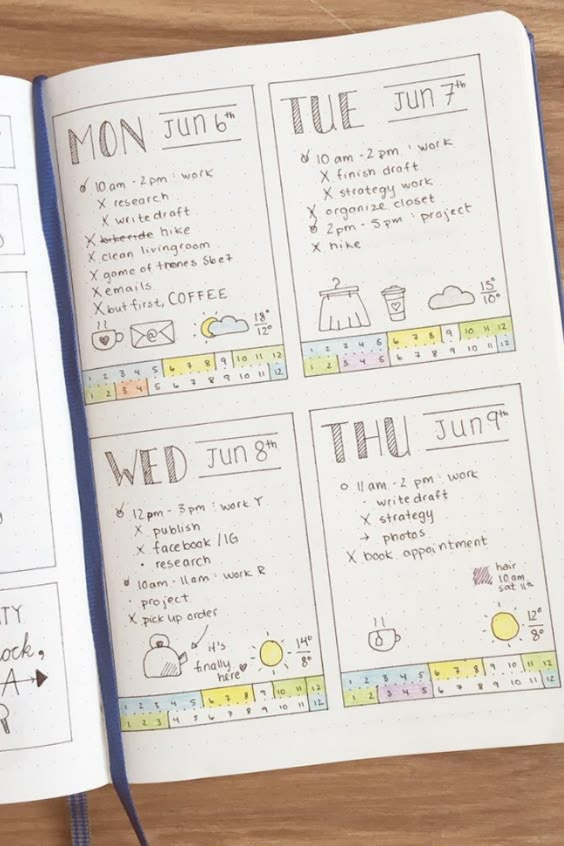 TY
ock,
A
R
MON Jun 6th
10 am - 2 pm : work
X research
X write draft
X bikeride hike
X clean livingroom
X game of thrones S6e7
X emails
X but first, COFFEE
18°
12°
1 2 3 4 5 6 7 8 9 10 11 12
1 2 3 4 5 6 7 8 9 10 11 12
TUE Jun 7th
10 am - 2 pm : work
X finish draft
X strategy work
X organize closet
2pm - 5pm : project
X hike
15°
10°
1 2 3 4 5 6 7 8 9 10 11 12
1 2 3 4 5 6 7 8 9 10 11 12
WED Jun 8th
12 pm - 3 pm : work Y
X publish
X facebook / IG
· research
10am - 11am : work R
· project
X pick up order
it's
finally
here ♥
14°
8°
1 2 3 4 5 6 7 8 9 10 11 12
1 2 3 4 5 6 7 8 9 10 11 12
THU Jun 9th
11 am - 2 pm : work
· write draft
X strategy
→ photos
X book appointment
hair
10 am
sat 11th
12°
8°
1 2 3 4 5 6 7 8 9 10 11 12
1 2 3 4 5 6 7 8 9 10 11 12